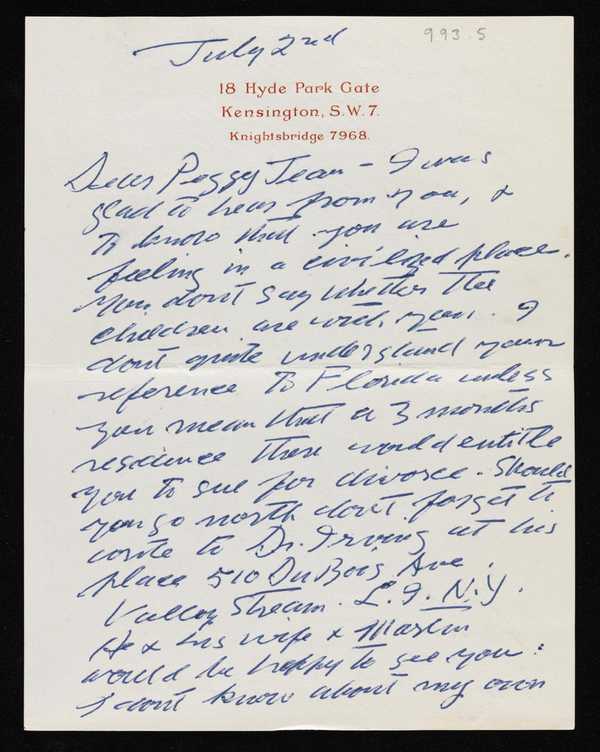 July 2nd
993.5
18 Hyde Park Gate
Kensington, S.W.7.
Knightsbridge 7968.
Dear Peggy Jean - I was
glad to hear from you, &
to know that you are
feeling in a civilized place.
You don't say whether the
children are with you. I
don't quite understand your
reference to Florida unless
you mean that a 3 months
residence there would entitle
you to sue for divorce. Should
you go north don't forget to
write to Dr. Irving at his
place 510 Du Bois Ave.
Valley Stream. L.I. N.Y.
He & his wife &
would be happy to see you.
I don't know about my own